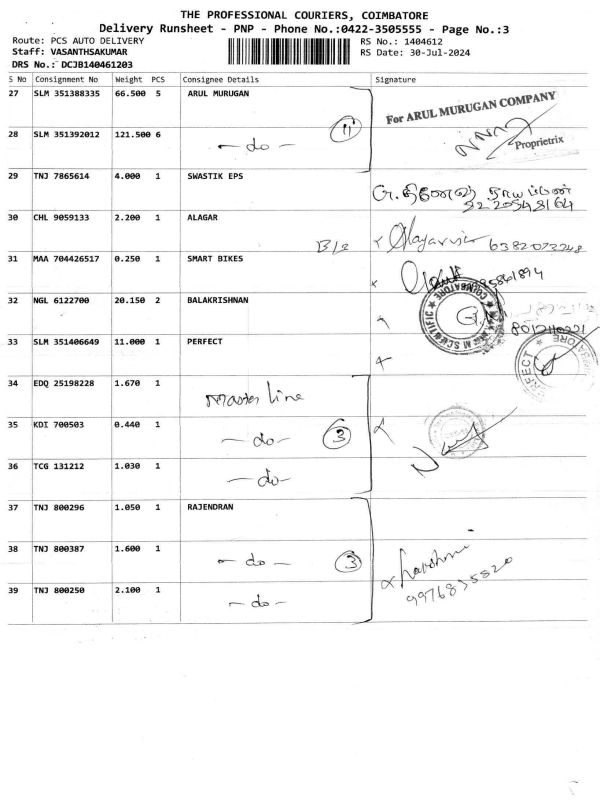 THE PROFESSIONAL COURIERS, COIMBATORE
Delivery Runsheet - PNP - Phone No.:0422-3505555 - Page No.:3
Route: PCS AUTO DELIVERY
RS No.: 1404612
Staff: VASANTHSAKUMAR
RS Date: 30-Jul-2024
DRS No.: DCJB140461203
S No Consignment No Weight PCS Consignee Details Signature
27 SLM 351388335 66.500 5 ARUL MURUGAN
For ARUL MURUGAN COMPANY
11
Proprietrix
28 SLM 351392012 121.500 6 - do -
29 TNJ 7865614 4.000 1 SWASTIK EPS
30 CHL 9059133 2.200 1 ALAGAR
31 MAA 704426517 0.250 1 SMART BIKES
32 NGL 6122700 20.150 2 BALAKRISHNAN
33 SLM 351406649 11.000 1 PERFECT
34 EDQ 25198228 1.670 1 Master line
35 KDI 700503 0.440 1 - do - 3
36 TCG 131212 1.030 1 - do -
37 TNJ 800296 1.050 1 RAJENDRAN
38 TNJ 800387 1.600 1 - do - 3
39 TNJ 800250 2.100 1 - do -
9976835820